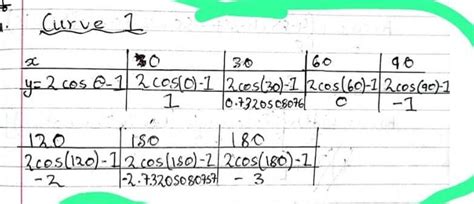 1. Curve 1
x 0 30 60 90
y=2 cos θ-1 2cos(0)-1 2cos(30)-1 2cos(60)-1 2cos(90)-1
1 0.7320508076 0 -1
120 150 180
2cos(120)-1 2cos(150)-1 2cos(180)-1
-2 -2.73205080757 -3